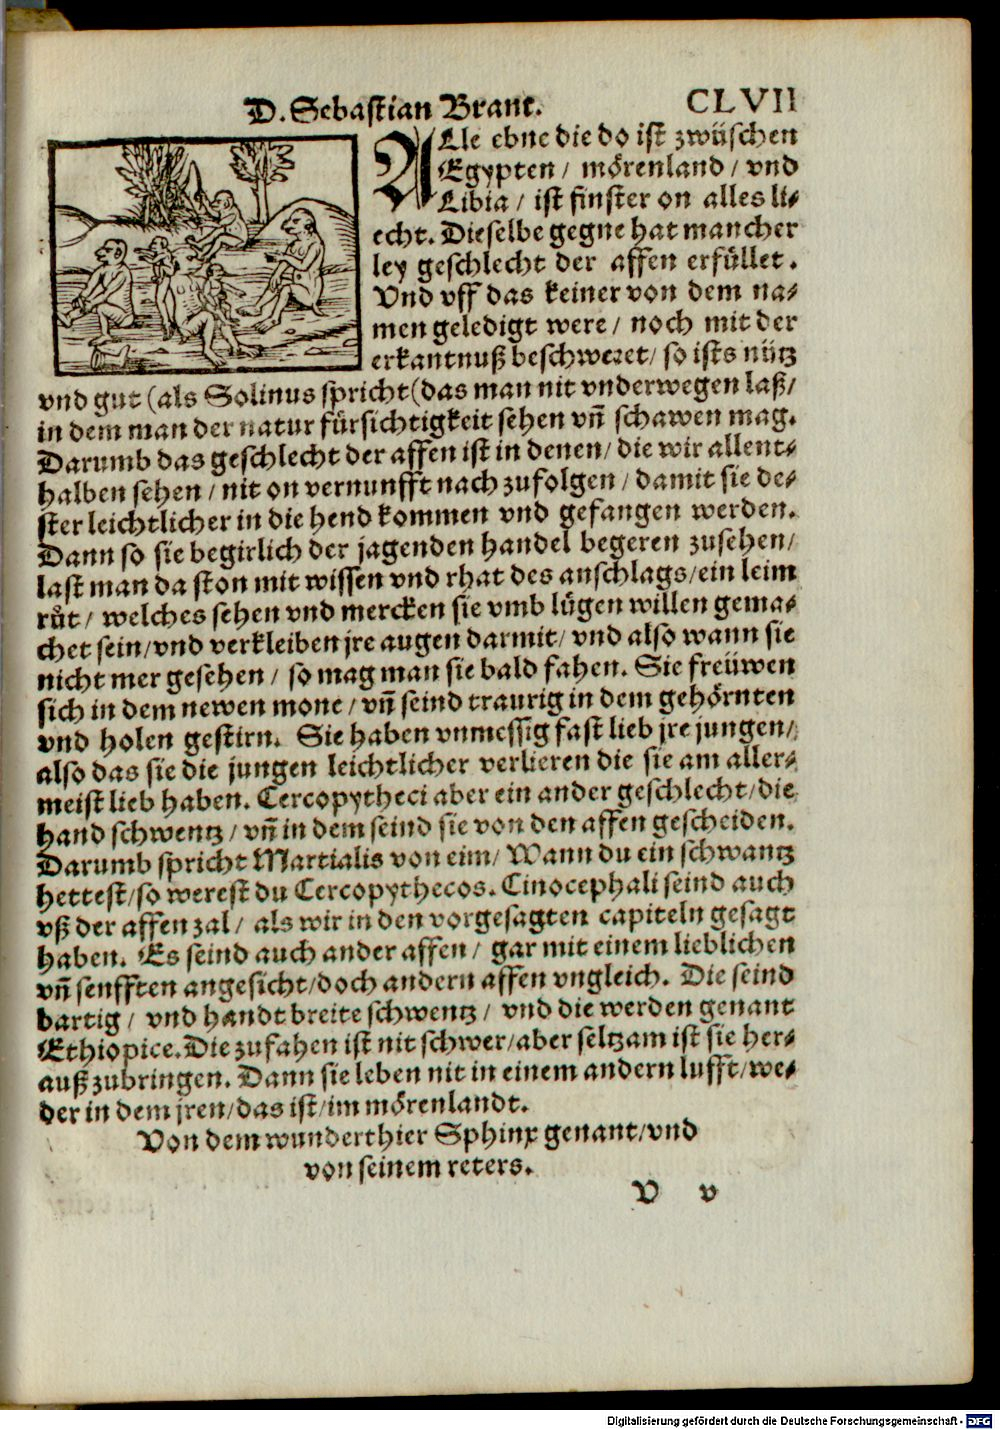 D. Sebastian Brant. CLVII
ALle ebne die do ist zwüschen
Egypten / mörenland / vnd
Libia / ist finster on alles li⸗
echt. Dieselbe gegne hat mancher
ley geschlecht der affen erfüllet.
Vnd vff das keiner von dem na⸗
men geledigt were / noch mit der
erkantnuß beschweret / so ists nütz
vnd gut (als Solinus spricht (das man nit vnderwegen laß /
in dem man der natur fürsichtigkeit sehen vñ schawen mag.
Darumb das geschlecht der affen ist in denen / die wir allent⸗
halben sehen / nit on vernunfft nach zufolgen / damit sie de⸗
ster leichtlicher in die hend kommen vnd gefangen werden.
Dann so sie begirlich der jagenden handel begeren zusehen /
last man da ston mit wissen vnd rhat des anschlags / ein leim
růt / welches sehen vnd mercken sie vmb lůgen willen gema⸗
chet sein / vnd verkleiben jre augen darmit / vnd also wann sie
nicht mer gesehen / so mag man sie bald fahen. Sie freüwen
sich in dem newen mone / vñ seind traurig in dem gehörnten
vnd holen gestirn. Sie haben vnmessig fast lieb jre jungen /
also das sie die jungen leichtlicher verlieren die sie am aller⸗
meist lieb haben. Cercopytheci aber ein ander geschlecht / die
hand schwentz / vñ in dem seind sie von den affen gescheiden.
Darumb spricht Martialis von eim / Wann du ein schwantz
hettest / so werest du Cercopythecos. Cinocephali seind auch
vß der affen zal / als wir in den vorgesagten capiteln gesagt
haben. Es seind auch ander affen / gar mit einem lieblichen
vñ senfften angesicht / doch andern affen vngleich. Die seind
bartig / vnd handt breite schwentz / vnd die werden genant
Ethiopice. Die zufahen ist nit schwer / aber seltzam ist sie her⸗
auß zubringen. Dann sie leben nit in einem andern lufft / we⸗
der in dem jren / das ist / im mörenlandt.
Von dem wunderthier Sphinx genant / vnd
von seinem reters.
V v
Digitalisierung gefördert durch die Deutsche Forschungsgemeinschaft - DFG